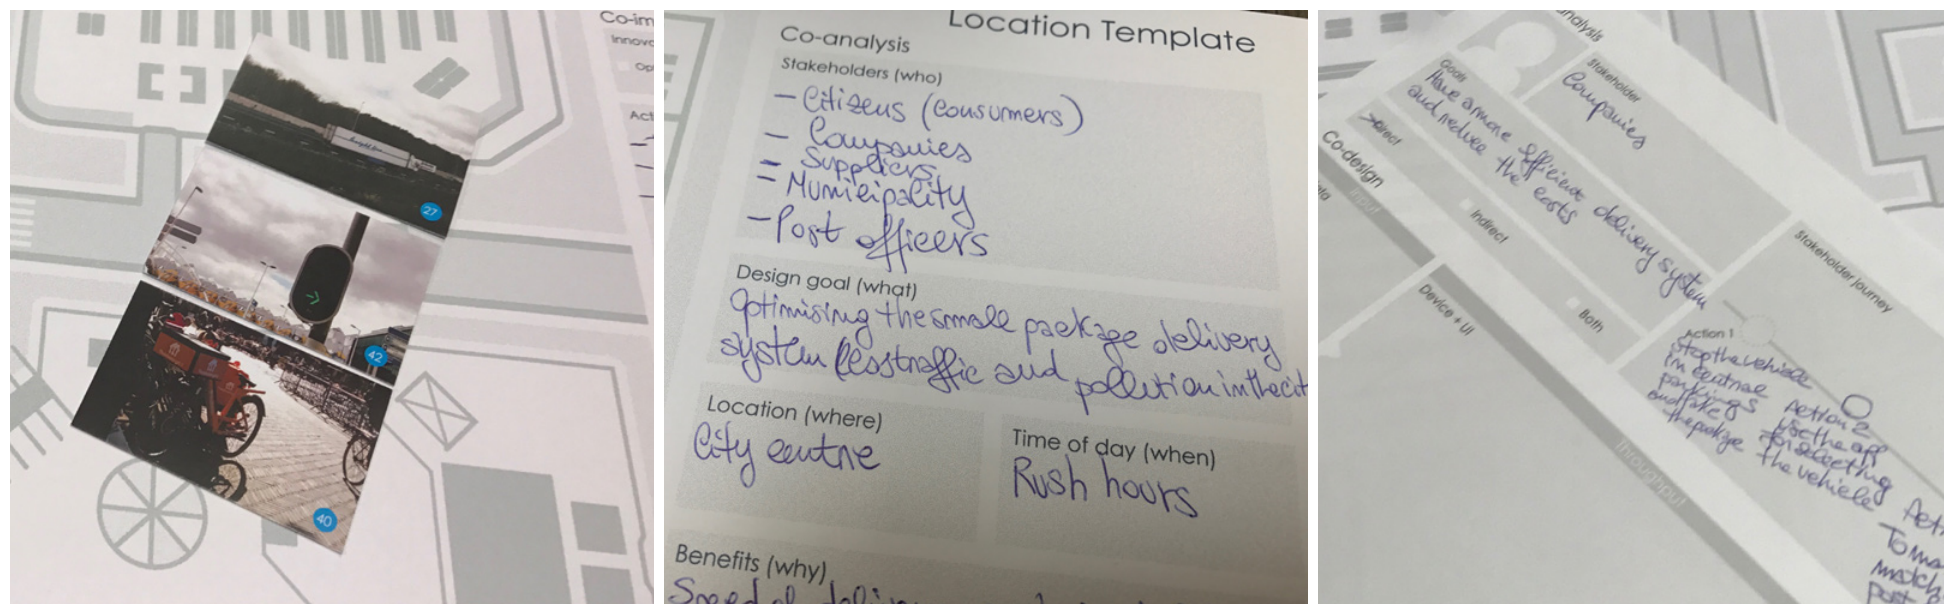 Co-im
Innova
Op
Act
27
42
40
Location Template
Co-analysis
Stakeholders (who)
- Citizens (consumers)
- Companies
- Suppliers
- Municipality
- Post officers
Design goal (what)
Optimising the small package delivery
system less traffic and pollution in the cit
Location (where)
City centre
Time of day (when)
Rush hours
Benefits (why)
Speed of
nalysis
Stakeholder
Companies
Goals
Have a more efficient delivery system
and reduce the costs
Direct
Indirect
Both
Co-design
Input
Device + UI
Throughput
Stakeholder journey
Action 1
stop the vehicle
in central
parkings
and take
the
Action 2
use the app
for selecting
the vehicle
Act
To ma
match
post